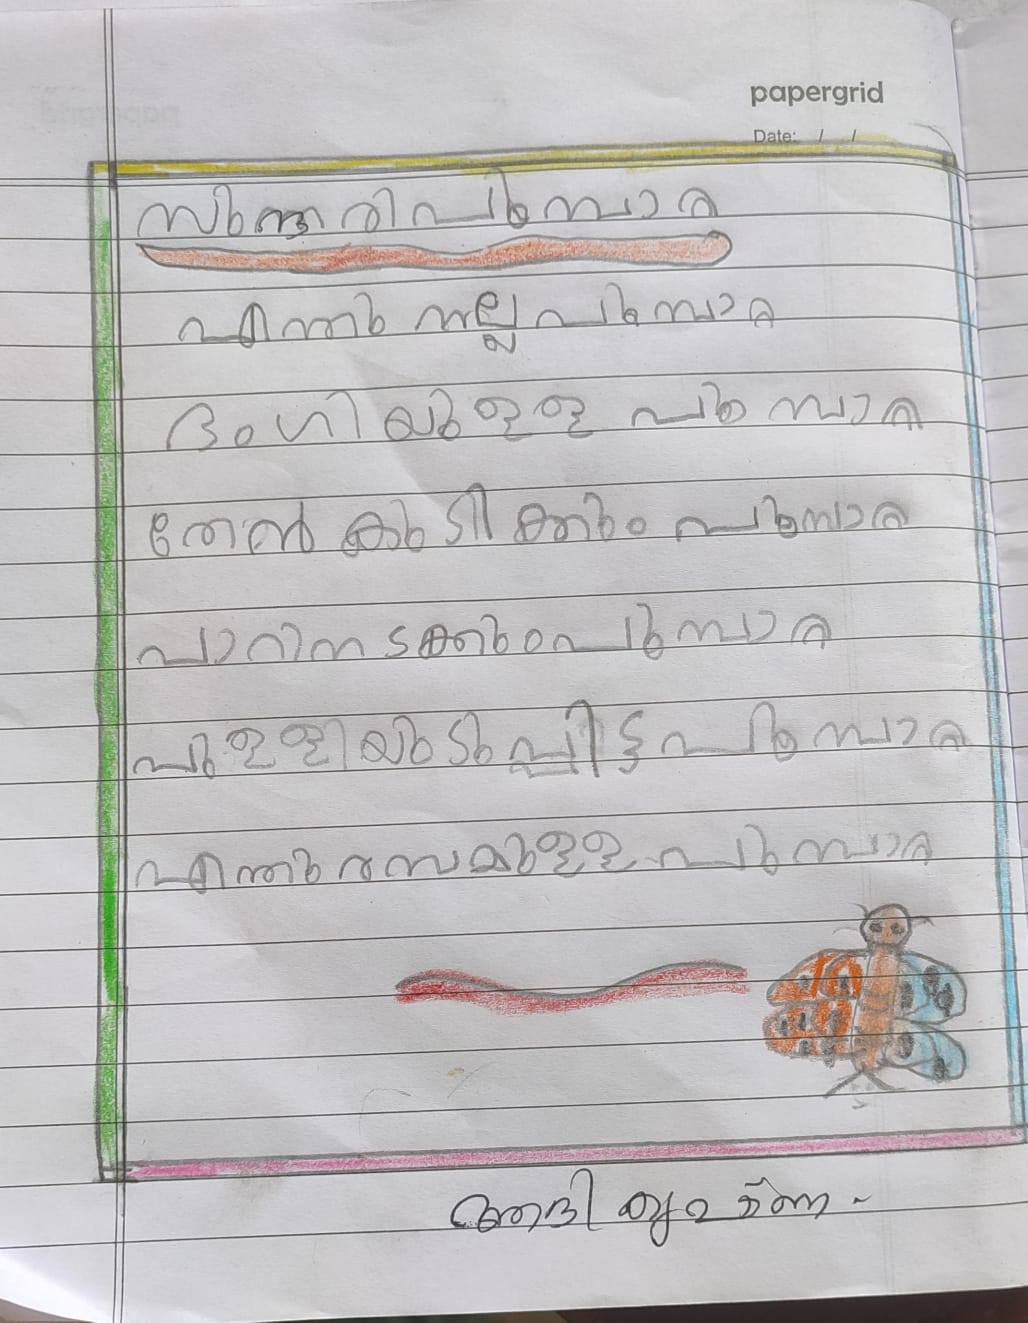 papergrid
Date: / /
സുന്ദരി പൂമ്പാറ്റ
എന്തു നല്ല പൂമ്പാറ്റ
ഭംഗിയുള്ള പൂമ്പാറ്റ
തേൻ കുടിക്കും പൂമ്പാറ്റ
പാറി നടക്കും പൂമ്പാറ്റ
പുള്ളിയുടുപ്പിട്ട പൂമ്പാറ്റ
എന്തു രസമുള്ള പൂമ്പാറ്റ